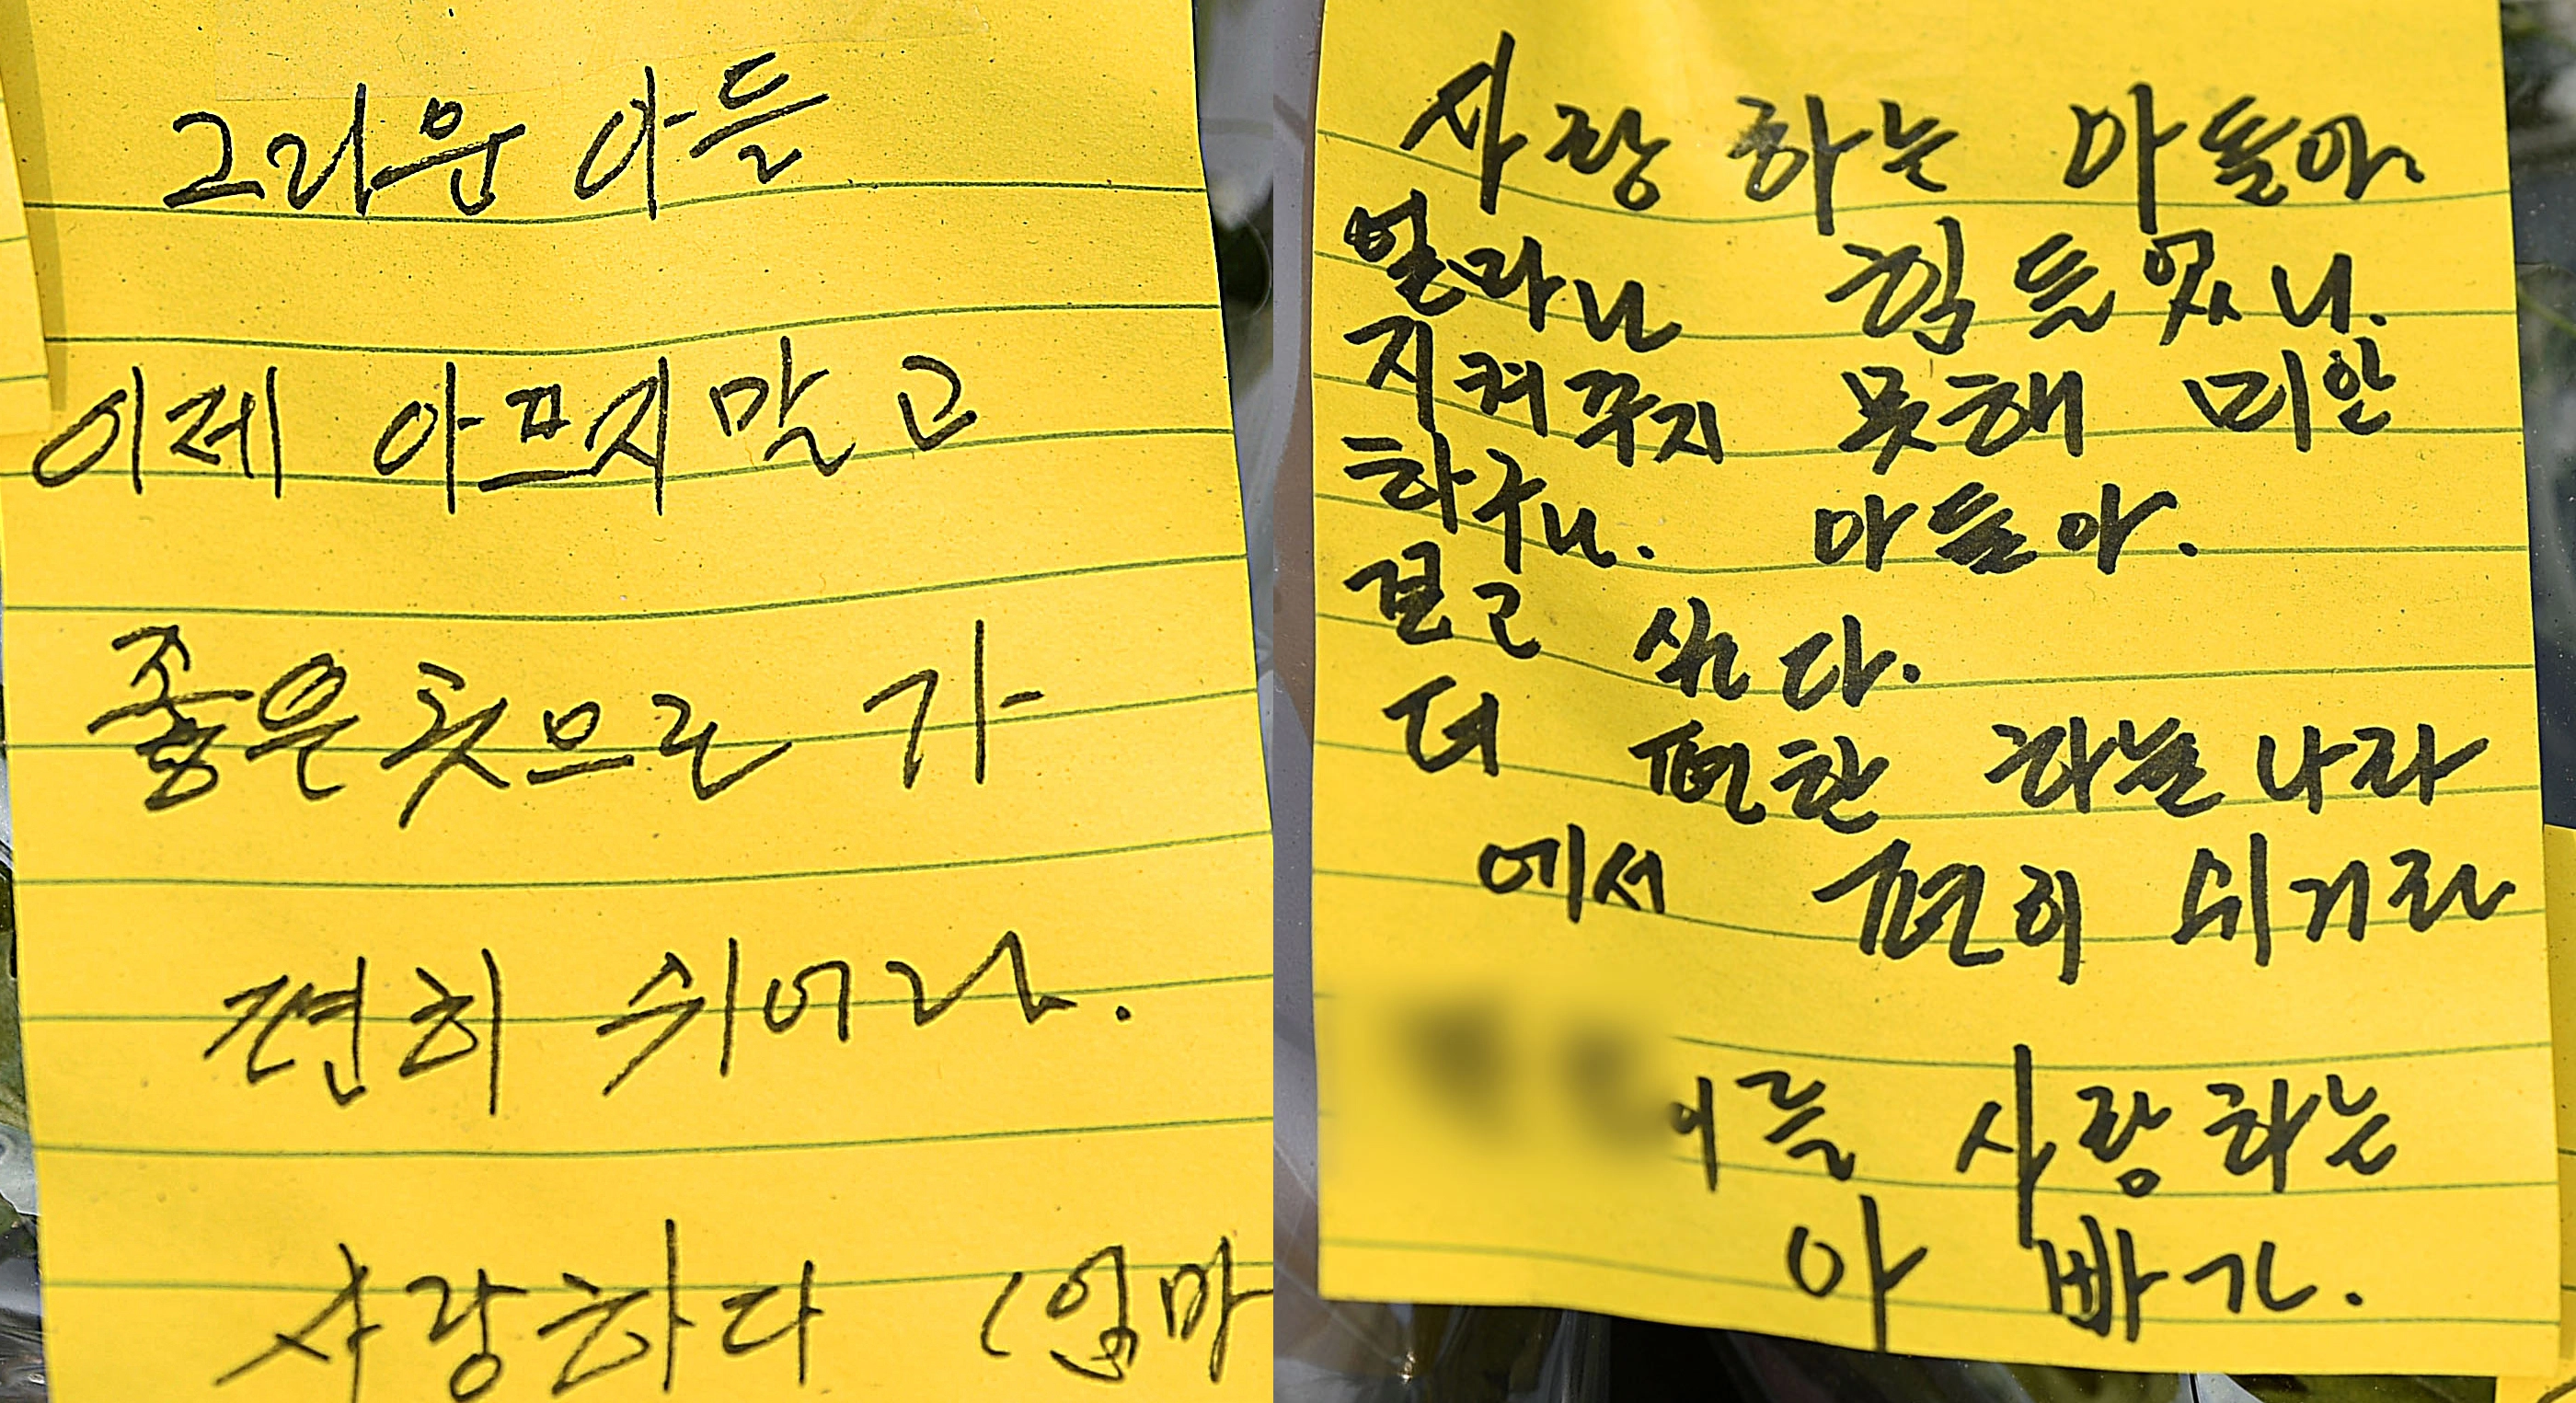 그리운 아들
이제 아프지 말고
좋은 곳으로 가
편히 쉬어라.
사랑하다 (엄마
사랑하는 아들아
얼마나 힘들었니.
지켜주지 못해 미안
하구나. 아들아.
보고 싶다.
더 편한 하늘나라
에서 편히 쉬거라
아들 사랑하는
아빠가.